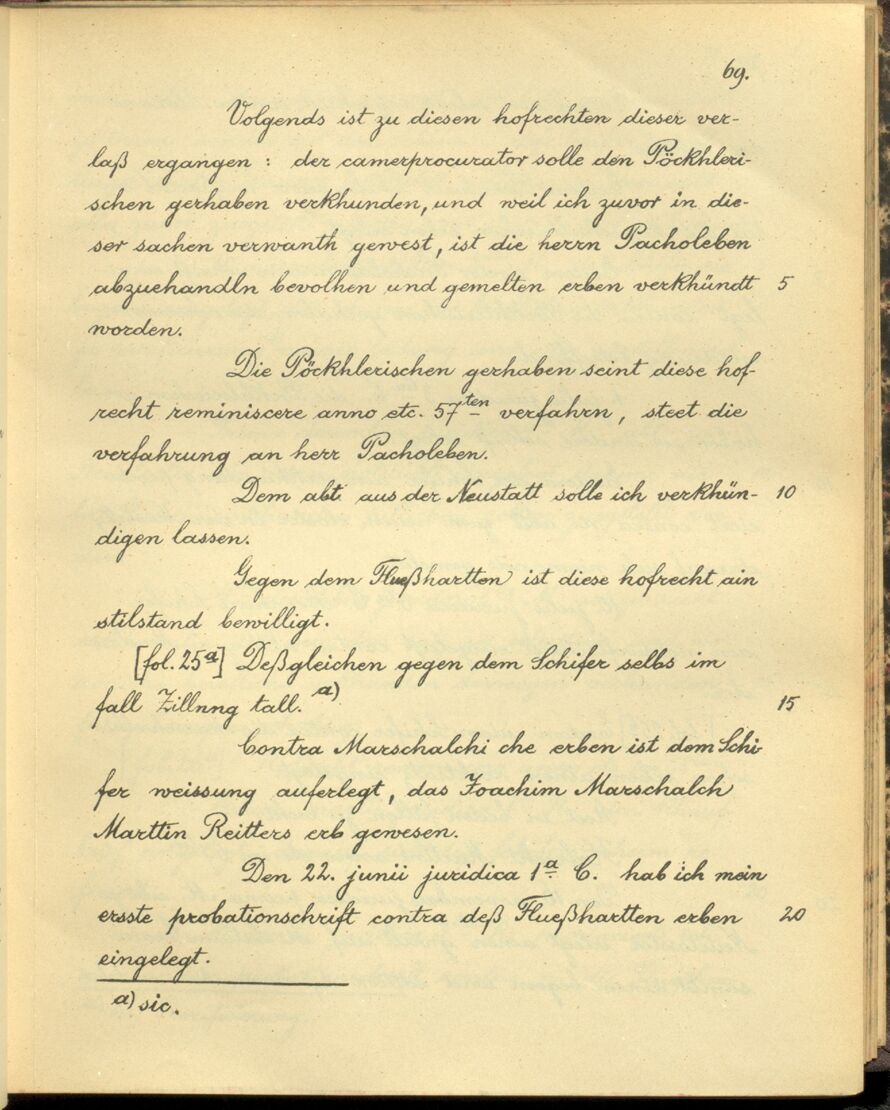 69.
Volgends ist zu diesen hofrechten dieser ver-
laß ergangen : der camerprocurator solle den Pöckhleri-
schen gerhaben verkhunden, und weil ich zuvor in die-
ser sachen verwanth gewest, ist die herrn Pacholeben
abzuehandln bevolhen und gemelten erben verkhündt 5
worden.
Die Pöckhlerischen gerhaben seint diese hof-
recht reminiscere anno etc. 57ten verfahrn, steet die
verfahrung an herr Pacholeben.
Dem abt aus der Neustatt solle ich verkhün- 10
digen lassen.
Gegen dem Flueßhartten ist diese hofrecht ain
stilstand bewilligt.
[fol. 25a] Deßgleichen gegen dem Schifer selbs im
fall Zillnng tall. a) 15
Contra Marschalchi che erben ist dem Schi-
fer weissung auferlegt, das Joachim Marschalch
Marttin Reitters erb gewesen.
Den 22. junii juridica 1a C. hab ich mein
ersste probationschrift contra deß Flueßhartten erben 20
eingelegt.
a) sic.